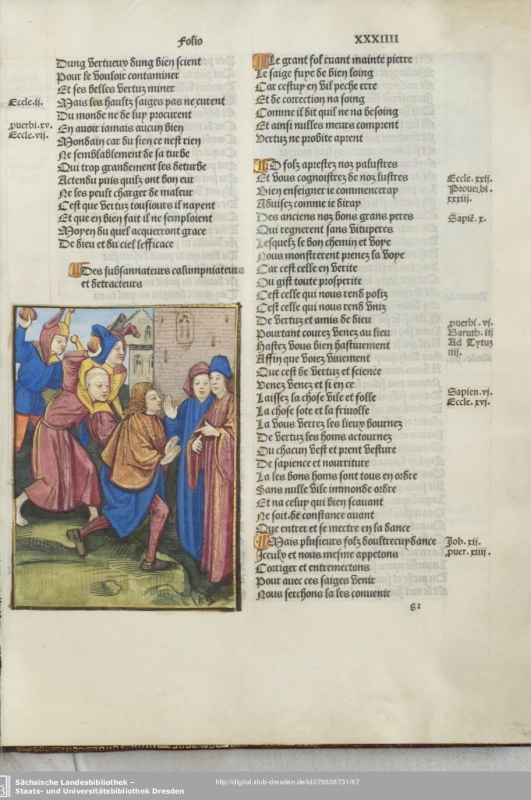 Folio
XXXIIII
Dung vertueux dung bien scient
Pour le vouloir contaminer
Et ses belles vertuz miner
Eccle.ii.
Mais les haultz saiges pas ne curent
Du monde ne de luy procurent
puerbi.xv.
En auoir iamais aucun bien
Eccle.vij.
Mondain car du sien ce nest rien
Ne semblablement de sa turbe
Qui trop grandement les deturbe
Actendu puis quilz ont bon eur
Ne les peult charger de maleur
Cest que vertuz tousiours il nayent
Et que en bien fait il ne semploient
Moyen du quel acquerront grace
De dieu et du ciel lefficace
Des subsannateurs calumpniateurs
et detracteurs
Le grant fol ruant mainte pierre
Le saige fuye de bien loing
Car cestuy en vil peche erre
Et de correction na soing
Comme il dit quil ne na besoing
Et ainsi nulles meurs comprent
Vertuz ne probite aprent
O folz aprestez noz palustres
Et vous cognoistrez de noz lustres
Eccle.xxii.
Bien enseigner ie commenceray
Prouerbi.
Aduisez comme ie diray
xxxiii.
Des anciens noz bons grans peres
Sapiē.x.
Qui regnerent sans vituperes
Lesquelz le bon chemin et voye
Nous monstrerent prenez la voye
Car cest celle en verite
Ou gist toute prosperite
Cest celle qui nous rend poliz
Cest celle qui nous rend vniz
De vertuz et amis de dieu
puerbi.vi.
Pourtant courez venez au lieu
Baruth.iij
Hastez vous bien hastiuement
Ad Tytuz
Affin que voiez viuement
iiij.
Que cest de vertuz et science
Venez venez et si en ce
Sapien.vi.
Laissez la chose vile et folle
Eccle.xvj.
La chose sote et la friuolle
La vous verrez les lieux bournez
De vertuz les homs actournez
Ou chacun vest et prent vesture
De sapience et nourriture
La les bons homs sont tous en ordre
Sans nulle vile immonde ordre
Et na celuy qui bien scauant
Ne soit.de constance auant
Que entrer et se mectre en la dance
Mais plusieurs folz doultrecuydance
Job.xii.
Iceulx et nous mesme appetons
puer.xiiii.
Corriger et entremectons
Pour auec ces saiges venir
Nous serchons la les conuenir
Sächsische Landesbibliothek –
Staats- und Universitätsbibliothek Dresden
http://digital.slub-dresden.de/id378636731/87